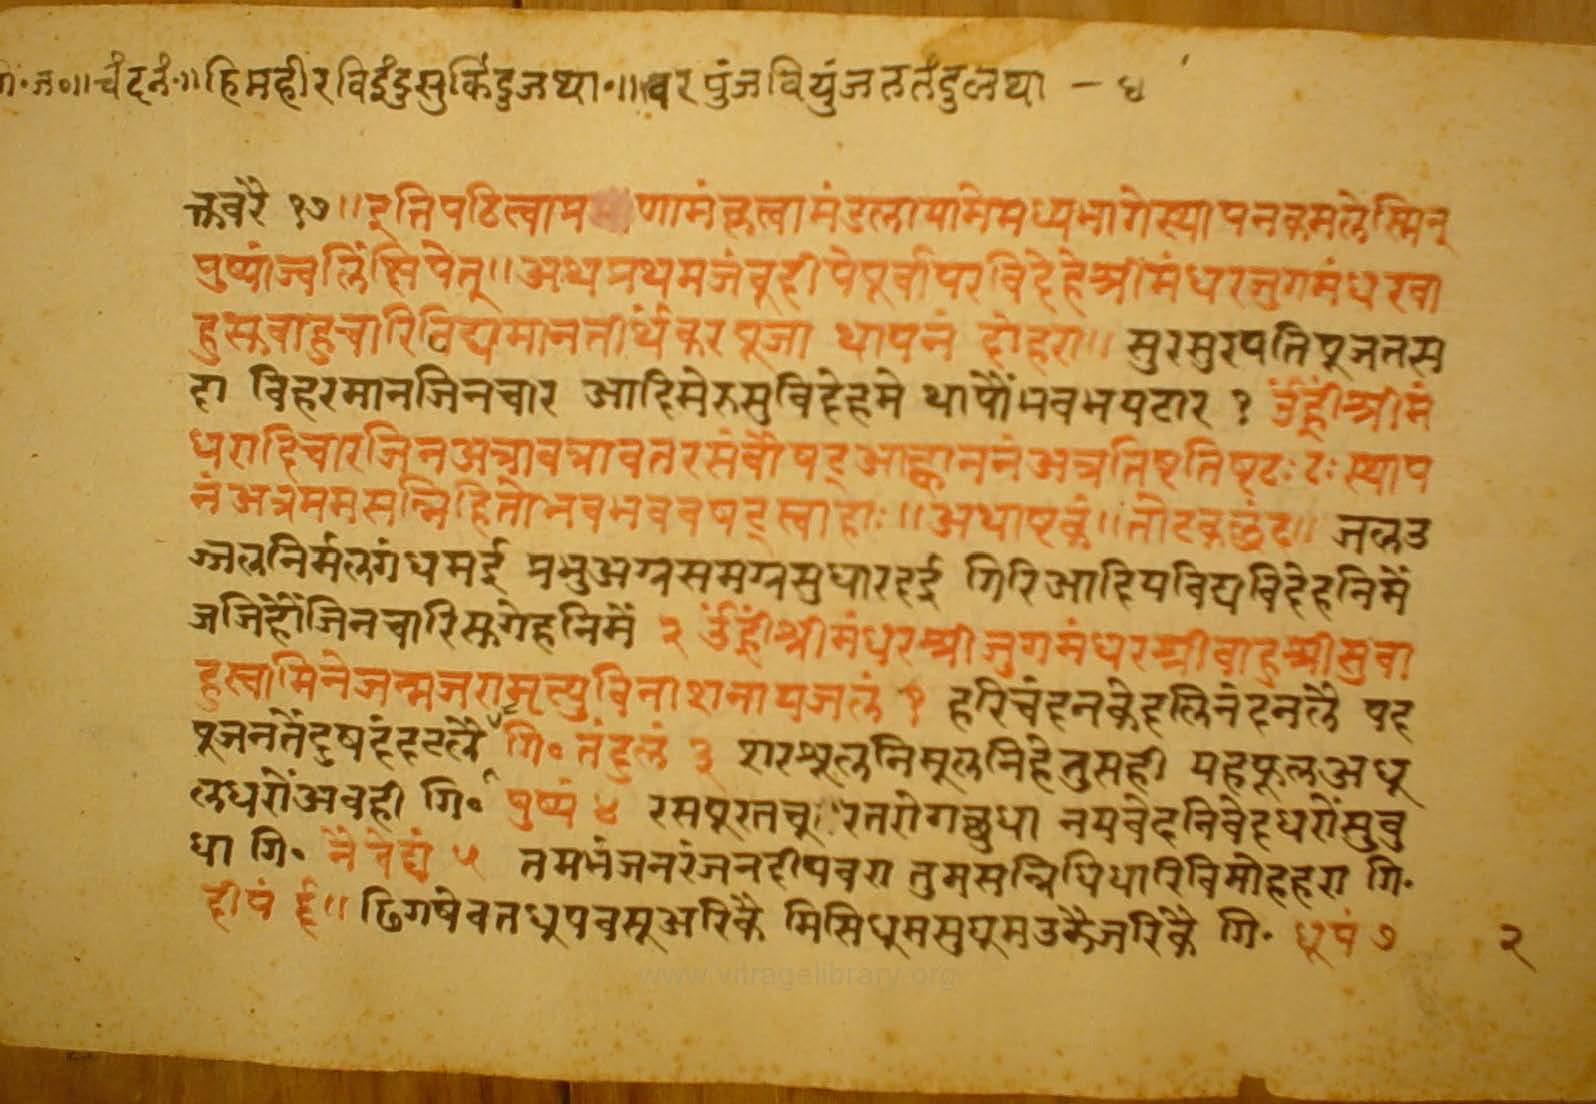 गि॰ज॰॥चंदनं॰॥हिमहीरविइंदुसुकिंदुजथा॰॥वरपुंजवियुंजततंदुलजथा – ४
क्तवरै १७॥इतिपठित्वाप्र णामंकृत्वामंडलायामेमध्यभागेस्थापनकमलेस्मिन्
पुष्पांज्वलिंक्षिपेत्॥अथप्रथमजंबूद्वीपेपूर्वापरविदेहेश्रीमंधरजुगमंधरवा
हुस्कवाहुचारिविद्यमानतीर्थंकरपूजा थापनं दोहरा॥ सुरसुरपतिपूजतस
दा विहरमानजिनचार आदिमेरुसुविदेहमे थापौंभवभयटार १ उँह्रींश्रीमं
धरादिचारजिनअत्रावत्रावतरसंवौषट्आह्वाननंअत्रतिष्टतिष्टठःठःस्थाप
नंअत्रममसन्निहितोभवभववषट्स्वाहाः॥अथाष्टकं॥तोटकछंद॥ जलउ
ज्जलनिर्मलगंधमई प्रभुअग्रसमग्रसुधारदई गिरिआदियविद्यविदेहनिमैं
जजिहौंजिनचारिस्कगेहनिमैं २ उँह्रींश्रीमंधरश्रीजुगमंधरश्रीवाहुश्रीसुवा
हुस्वामिनेजन्मजरामृत्युविनाशनायजलं १ हरिचंदनकेदलिनंदनलै पद
पूजनतैंदुषदंददलै गि॰ तंदुलं ३ शरश्रूलनिमूलनिहेतुसही यहफूलअधू
लधरोंअवही गि॰ पुष्पं ४ रसपूरतचू रतरोगछुधा नयवेदनिवेदधरोंसुवु
धा गि॰ नैवेद्यं ५ तमभंजनरंजनदीपवरा तुमसन्निधिधारिविमोहहरा गि॰
दीपं ६॥ ढिगषेवतधूपवसूअरिकै मिसिधूमसुघूमउकैजरिकै गि॰ धूपं ७
२
www.vitragelibrary.org